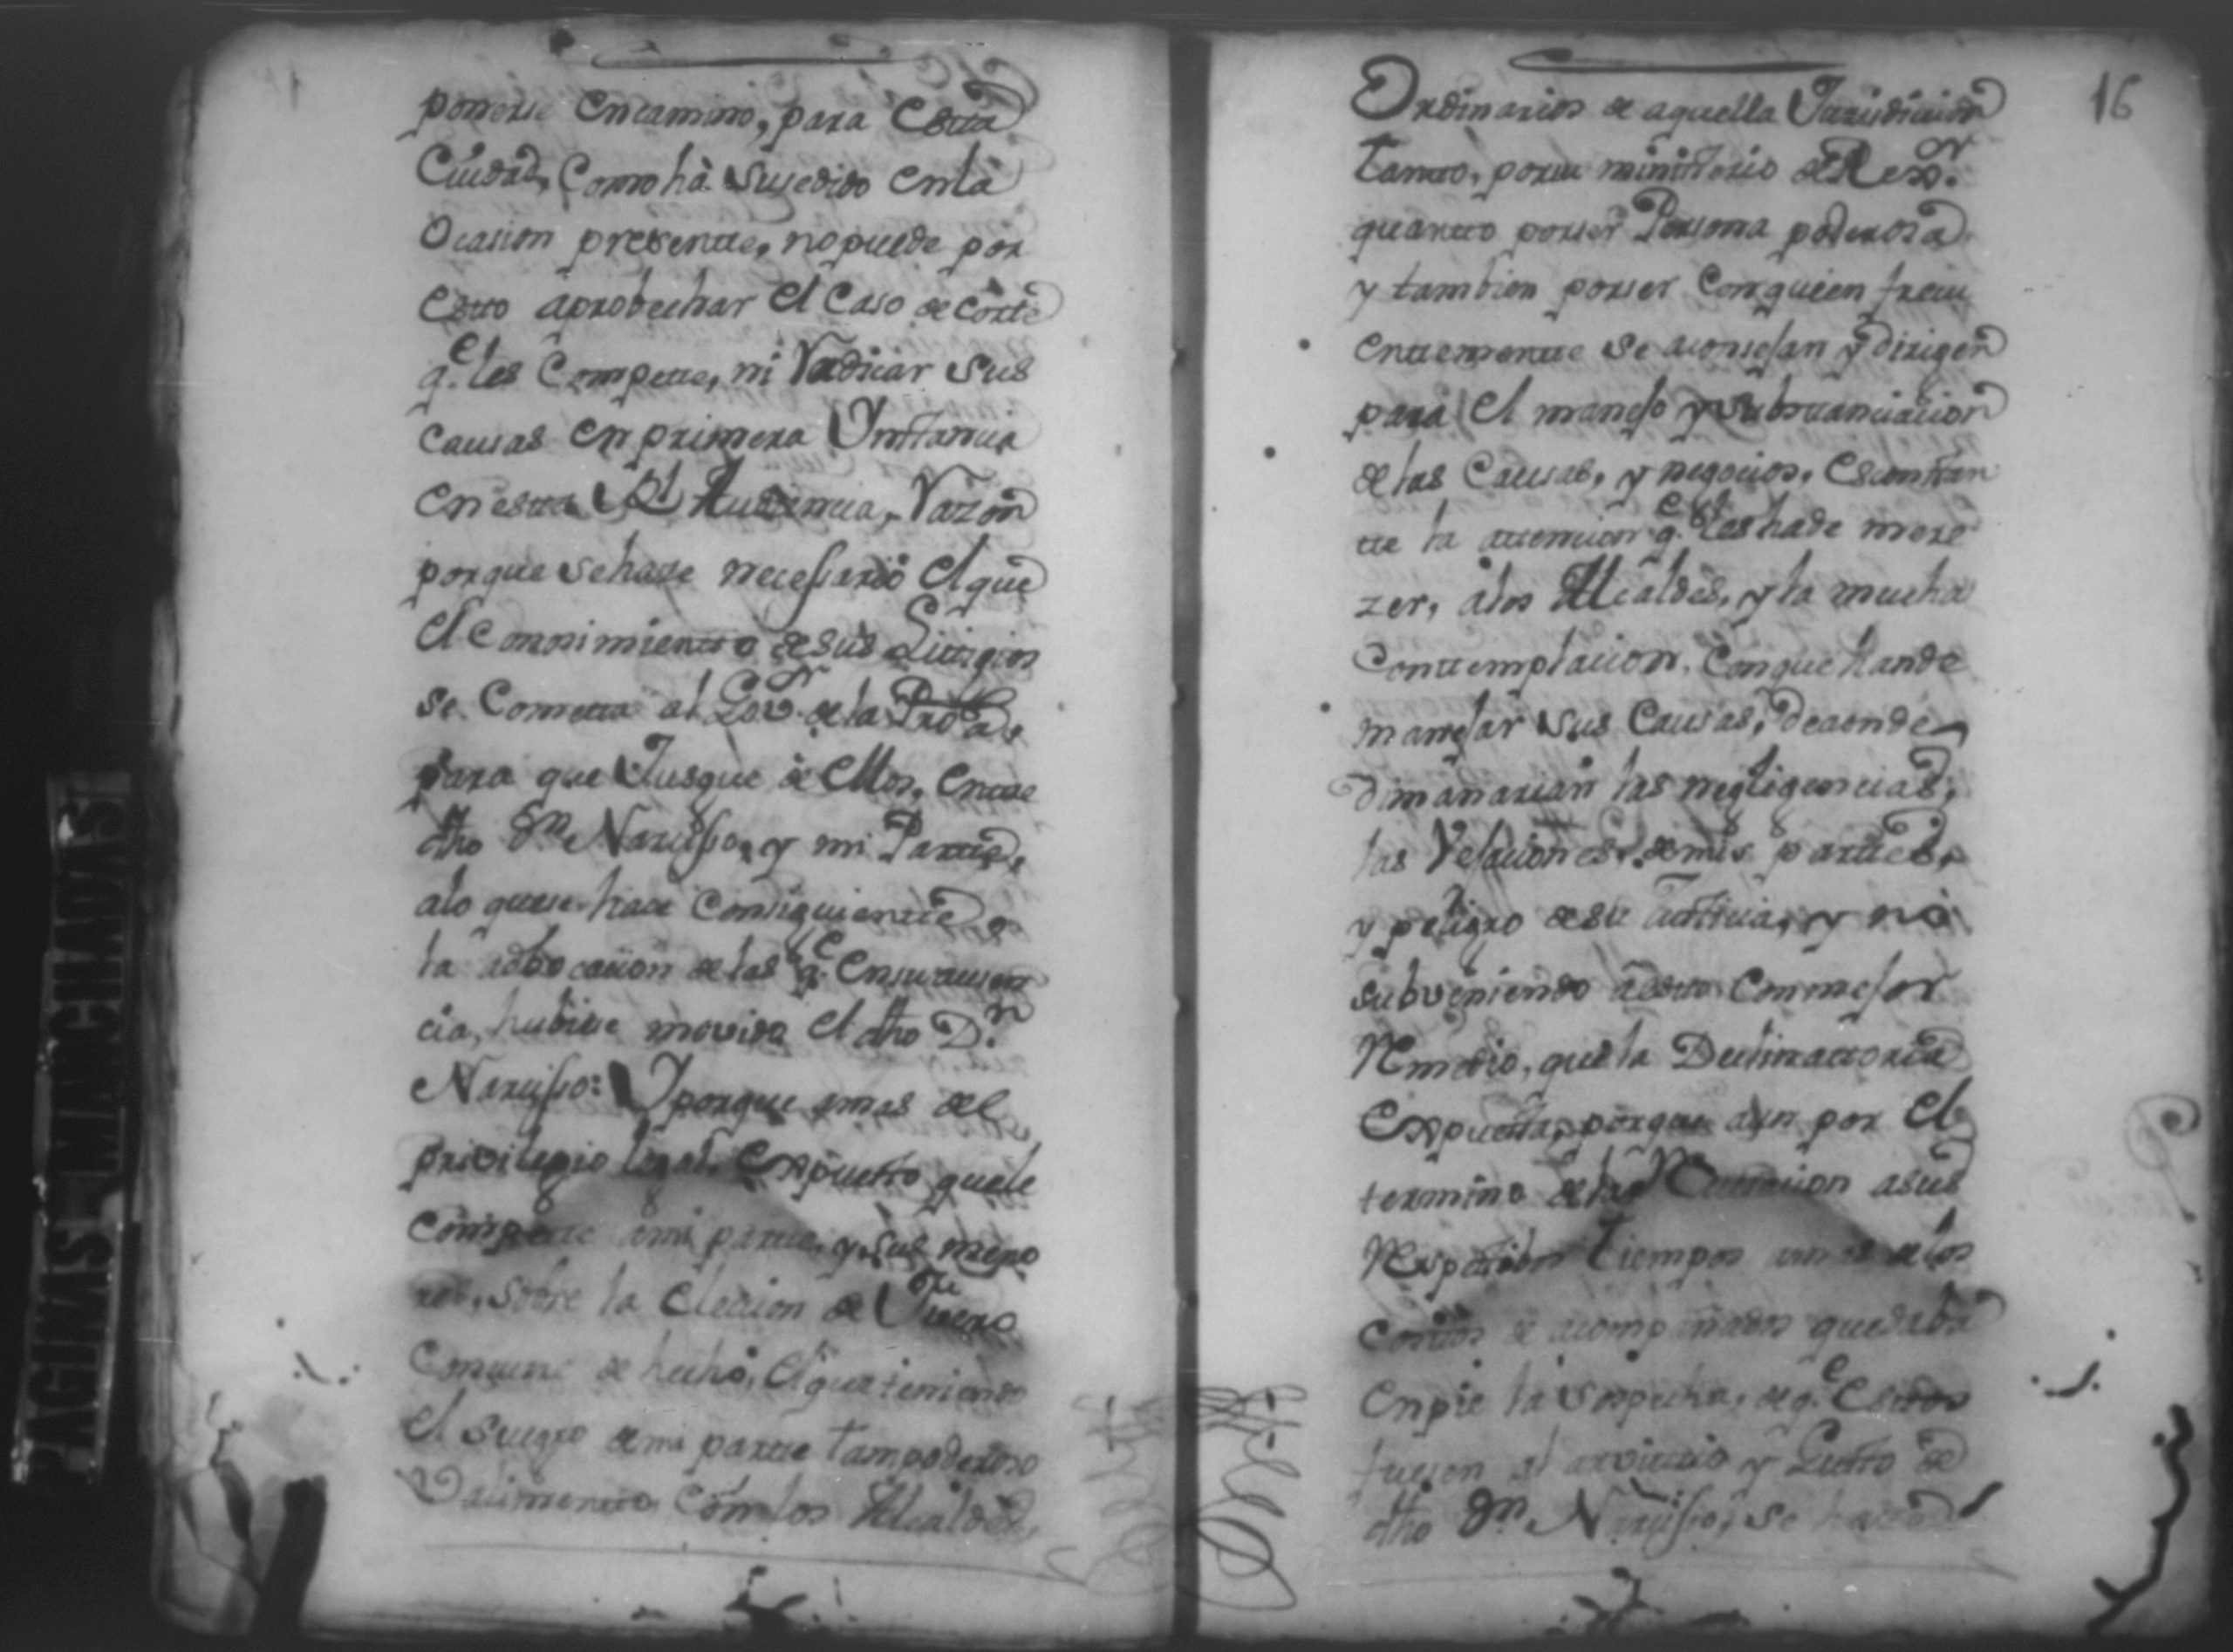 ponerse en camino, para Estta
Ciudad, Como hà Susedido en la
Ocasion presentte, no puede por
Estto aprobechar el Caso de Corte
q.e les Compette, ni Radicar Sus
Causas en primera Ynstancia
en estta Rl Audiencia, Razon
porque se haze necessario el que
el Conosimientto de sus Littigios
se Cometta al Gov.r de la Prov.a,
para que Jusgue de Ellos, Enttre
dho Dn Narcisso, y mi Partte,
alo que se hace Consiguientte,
la adbocacion de las q.e en su ausen
cia, hubiese movido el dho D.n
Narcisso: Y porque amas del
privilegio legal, Expuesto que le
Compette a mi partte, y sus meno
res, sobre la Eleccion de Fuero
Concurre de hecho, el que teniendo
el Suegro de mi partte tan poderoso
Valimientto con los Alcaldes,
16
Ordinarios de aquella Jurisdiccion
tantto, por su ministerio de Rex.r
quantto por ser Persona poderosa,
y tambien por ser Con quien frequ
enttementte se aconsejan y dirigen
para el manejo y substanciacion
de las Causas, y negocios, Es constan
tte la attencion q.e les ha de mere
zer, alos Alcaldes, y la mucha
Conttemplacion, Con que han de
manejar sus Causas, de aonde
dimanarian las negligencias,
las Vejaciones, de mis parttes,
y peligro de su Justicia, y no
subveniendo a estto Con mejor
Remedio, que la Declinattoria
Expuesta, porque aun por el
termino de la asus
Respectibos tiempos de los
Consios de acompañados quedaba
en pie la sospecha, de q.e Esttos
fuesen al arvittrio y Gusto de
dho Dn Narcisso, se
PAGINAS MANCHADAS